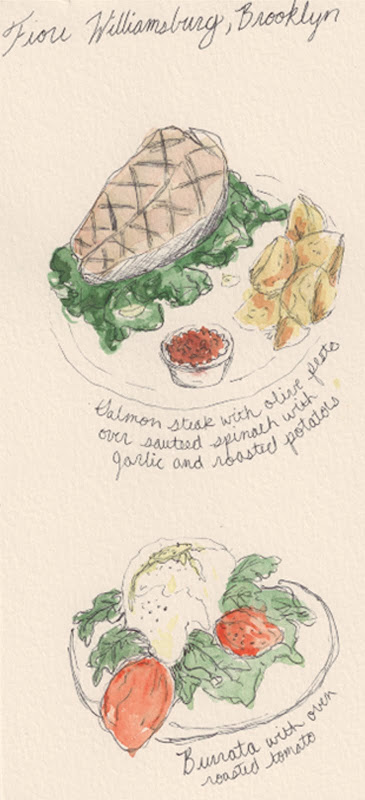 Fiore Williamsburg, Brooklyn
Salmon steak with olive pesto
over sauteed spinach with
garlic and roasted potatoes
Burrata with oven
roasted tomato